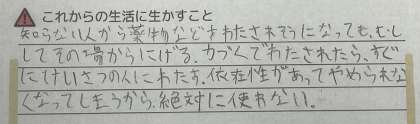 これからの生活に生かすこと
知らない人から薬物などをわたされそうになっても、むし
してその場からにげる。力づくでわたされたら、すぐ
にけいさつの人にわたす。依存性があってやめられな
くなってしまうから、絶対に使わない。